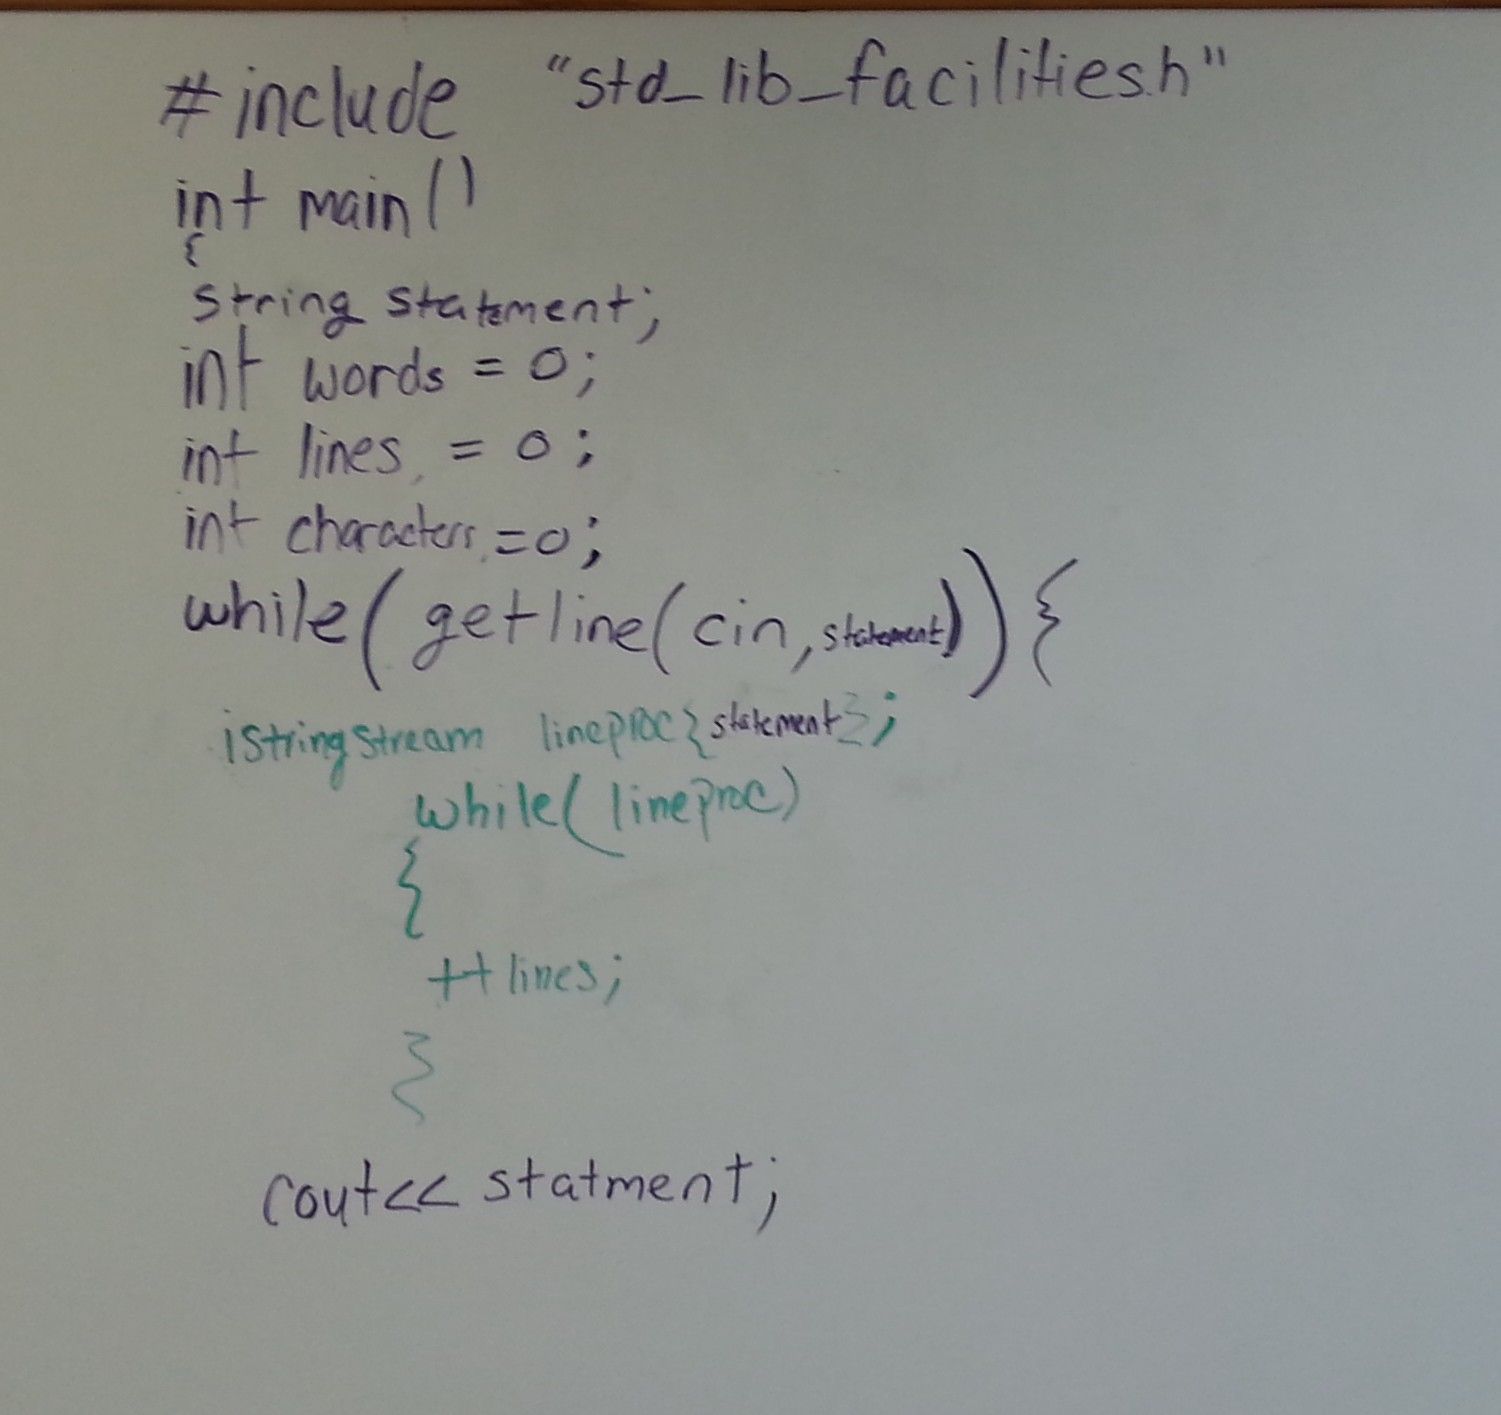 #include "std_lib_facilities.h"
int main()
{
string statement;
int words = 0;
int lines = 0;
int characters = 0;
while(getline(cin,statement)){
istringstream lineproc{statement};
while(lineproc)
{
++lines;
}
cout<< statment;